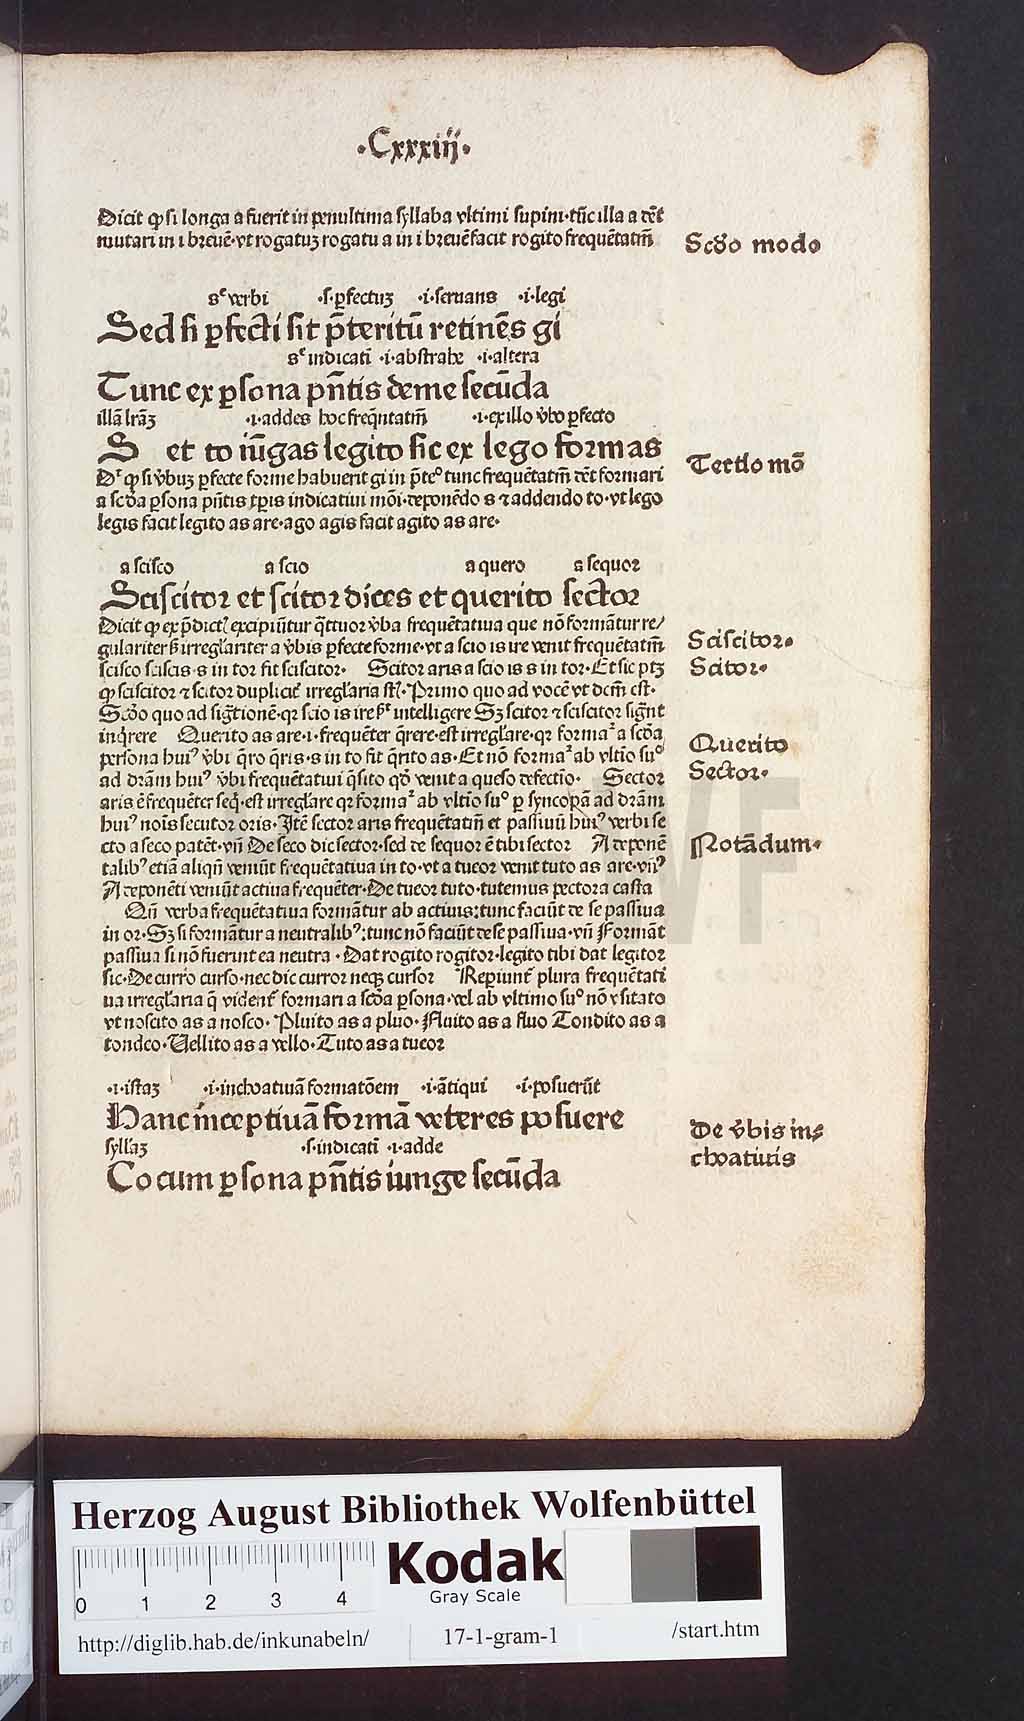 ·Cxxxiij·
Dicit ꝙ si longa a fuerit in penultima syllaba vltimi supini·tūc illa a dēt
mutari in i breuē·vt rogatuꝫ rogatu a in i breuē facit rogito frequētatiū
Scḋo modo
sᵉ verbi ·s·ꝑfectuꝫ ·i·seruans ·i·legi
Sed si ꝑfecti sit p̄teritū retinēs gi
sᵉ indicati ·i·abstrahe ·i·altera
Tunc ex ꝑsona pn̄tis deme secūda
illā lr̄aꝫ ·i·addes hoc freq̄ntatiū ·i·ex illo v̇bo ꝑfecto
S et to iūgas legito sic ex lego formas
Tertio mō
Dʳ ꝙ si v̇buꝫ ꝑfecte forme habuerit gi in p̄teᵒ tunc frequētatiū dēt formari
a scḋa ꝑsona pn̄tis tꝑis indicatiui mōi·deponēdo s ⁊ addendo to·vt lego
legis facit legito as are·ago agis facit agito as are·
a scisco a scio a quero a sequor
Sciscitor et scitor dices et querito sector
Dicit ꝙ ex p̄dict᷑ excipiūtur q̄ttuor v̇ba frequētatiua que nō formātur re/
gulariter ß irregl̄ariter a v̇bis ꝑfecte forme·vt a scio is ire venit frequētatiū
Sciscitor·
scisco sciscis·s in tor fit sciscitor· Scitor aris a scio is s in tor·Et sic ptꝫ
Scitor·
ꝙ sciscitor ⁊ scitor duplicit᷑ irregl̄aria st᷑·Primo quo ad vocē vt dcm̄ est·
Scḋo quo ad sigt̄ionē·qꝛ scio is ire ßᵗ intelligere Sꝫ scitor ⁊ sciscitor signt̄
inq̄rere Querito as are·i·frequēter q̄rere·est irregl̄are·qꝛ formaᵗ a scḋa
Querito
persona huiꝰ v̇bi q̄ro q̄ris·s in to fit q̄rito as·Et nō formaᵗ ab vltīo suᵒ
ad dr̄am huiꝰ v̇bi frequētatiui q̄sito qḋ venit a queso defectīo· Sector
Sector·
aris ē frequēter seq̄·est irregl̄are qꝛ formaᵗ ab vltīo suᵒ ꝑ syncopā ad dr̄am
huiꝰ noīs secutor oris·Itē sector aris frequētatiū et passiuū huiꝰ verbi se
cto a seco patēt·vn̄ De seco dic sector·sed de sequor ē tibi sector A deponē
Notādum·
talibꝰ etiā aliqn̄ veniūt frequētatiua in to·vt a tueor venit tuto as are·vn̄ꝰ
A deponēti veniūt actiua frequēter·De tueor tuto·tutemus pectora casta
Qn̄ verba frequētatiua formātur ab actiuis:tunc faciūt de se passiua
in or·Sꝫ si formātur a neutralibꝰ:tunc nō faciūt de se passiua·vn̄ Formāt
passiua si nō fuerint ea neutra·Dat rogito rogitor·legito tibi dat legitor
sic·De curro curso·nec dic curror neqꝫ cursor Repiunt᷑ plura frequētati
ua irregl̄aria q̄ vident᷑ formari a scḋa ꝑsona·vel ab vltimo suᵒ nō vsitato
vt noscito as a nosco·Pluito as a pluo·Fluito as a fluo Tondito as a
tondeo·Uellito as a vello·Tuto as a tueor
·i·istaꝫ ·i·inchoatiuā formatōem ·i·ātiqui ·i·posuerūt
Hanc inceptiuā formā veteres posuere
De v̇bis in⸗
choatiuis
syll̄aꝫ ·s·indicati ·i·adde
Co cum ꝑsona pn̄tis iunge secūda
Herzog August Bibliothek Wolfenbüttel
Kodak
Gray Scale
0 1 2 3 4
http://diglib.hab.de/inkunabeln/ 17-1-gram-1 /start.htm